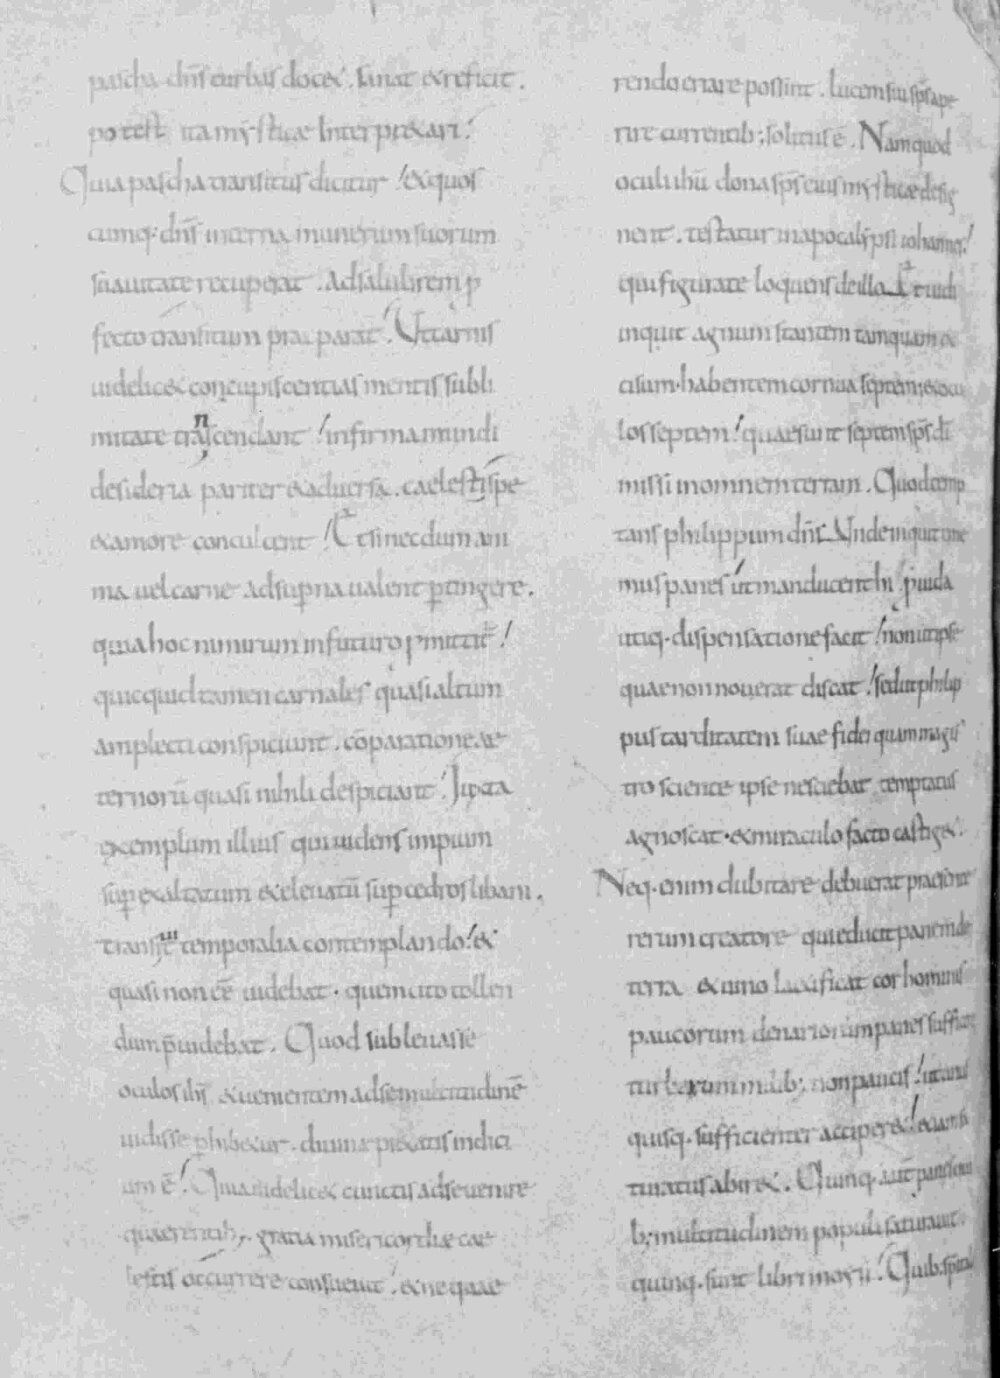 pascha dn̄s turbas docet. sanat et reficit.
potest ita mysticae Interpretari.
Quia pascha transitus dicitur et quos
cumq; dn̄s interna munerum suorum
suauitate recuperat. Ad salubrem p
fecto transitum praeparat. Ut carnis
uidelicet concupiscentias mentis subli
mitate transcendant infirma mundi
desideria pariter et aduersa. caelesti spe
et amore conculcent Et si necdum ani
ma uel carne ad sup̄na ualent p̄tingere.
quia hoc nimirum in futuro p̄mittit̄
quicquid tamen carnales quasi altum
amplecti conspiciunt. cōparatione ae
ternorū quasi nihili despiciant Iuxta
exemplum illius qui uidens impium
sup̄exaltatum et eleuatū sup̄ cedros libani.
transiit temporalia contemplando et
quasi non eē uidebat. quem cito tollen
dum p̄uidebat. Quod subleuasse
oculos ih̄s et uenientem ad se multitudinē
uidisse phibetur. diuinae pietatis indici
um ē Quia uidelicet cunctis ad se uenire
quaerentib; gratia misericordiae cae
lestis occurrere consueuit et ne quae
rendo errare possint. lucem sui sp̄s ape
rire currentib; solitus ē. Nam quod
oculi ih̄u dona sp̄s eius mysticae desig
nent. testatur in apocalypsi iohannes
qui figurate loquens de illo Et uidi
inquit agnum stantem tamquam oc
cisum. habentem cornua septem et ocu
los septem quae sunt septem sp̄s dī
missi in omnem terram. Quod temp
tans philippum dn̄s Unde inquit eme
mus panes ut manducent hi p̄uida
utiq; dispensatione facit non ut ipse
quae non nouerat discat sed ut philip
pus tarditatem suae fidei quam magis
tro sciente ipse nesciebat temptatus
agnoscat. et miraculo facto castiget.
Neq; enim dubitare debuerat praesente
rerum creatore qui educit panem de
terra et uino laetificat cor hominis
paucorum denariorum panes sufficere
turbarum milib; non paucis ut unus
quisq; sufficienter acciperet et
turatus abiret. Quinq; autē panes
b; multitudinem populi saturauit.
quinq; sunt libri moysi Quib;